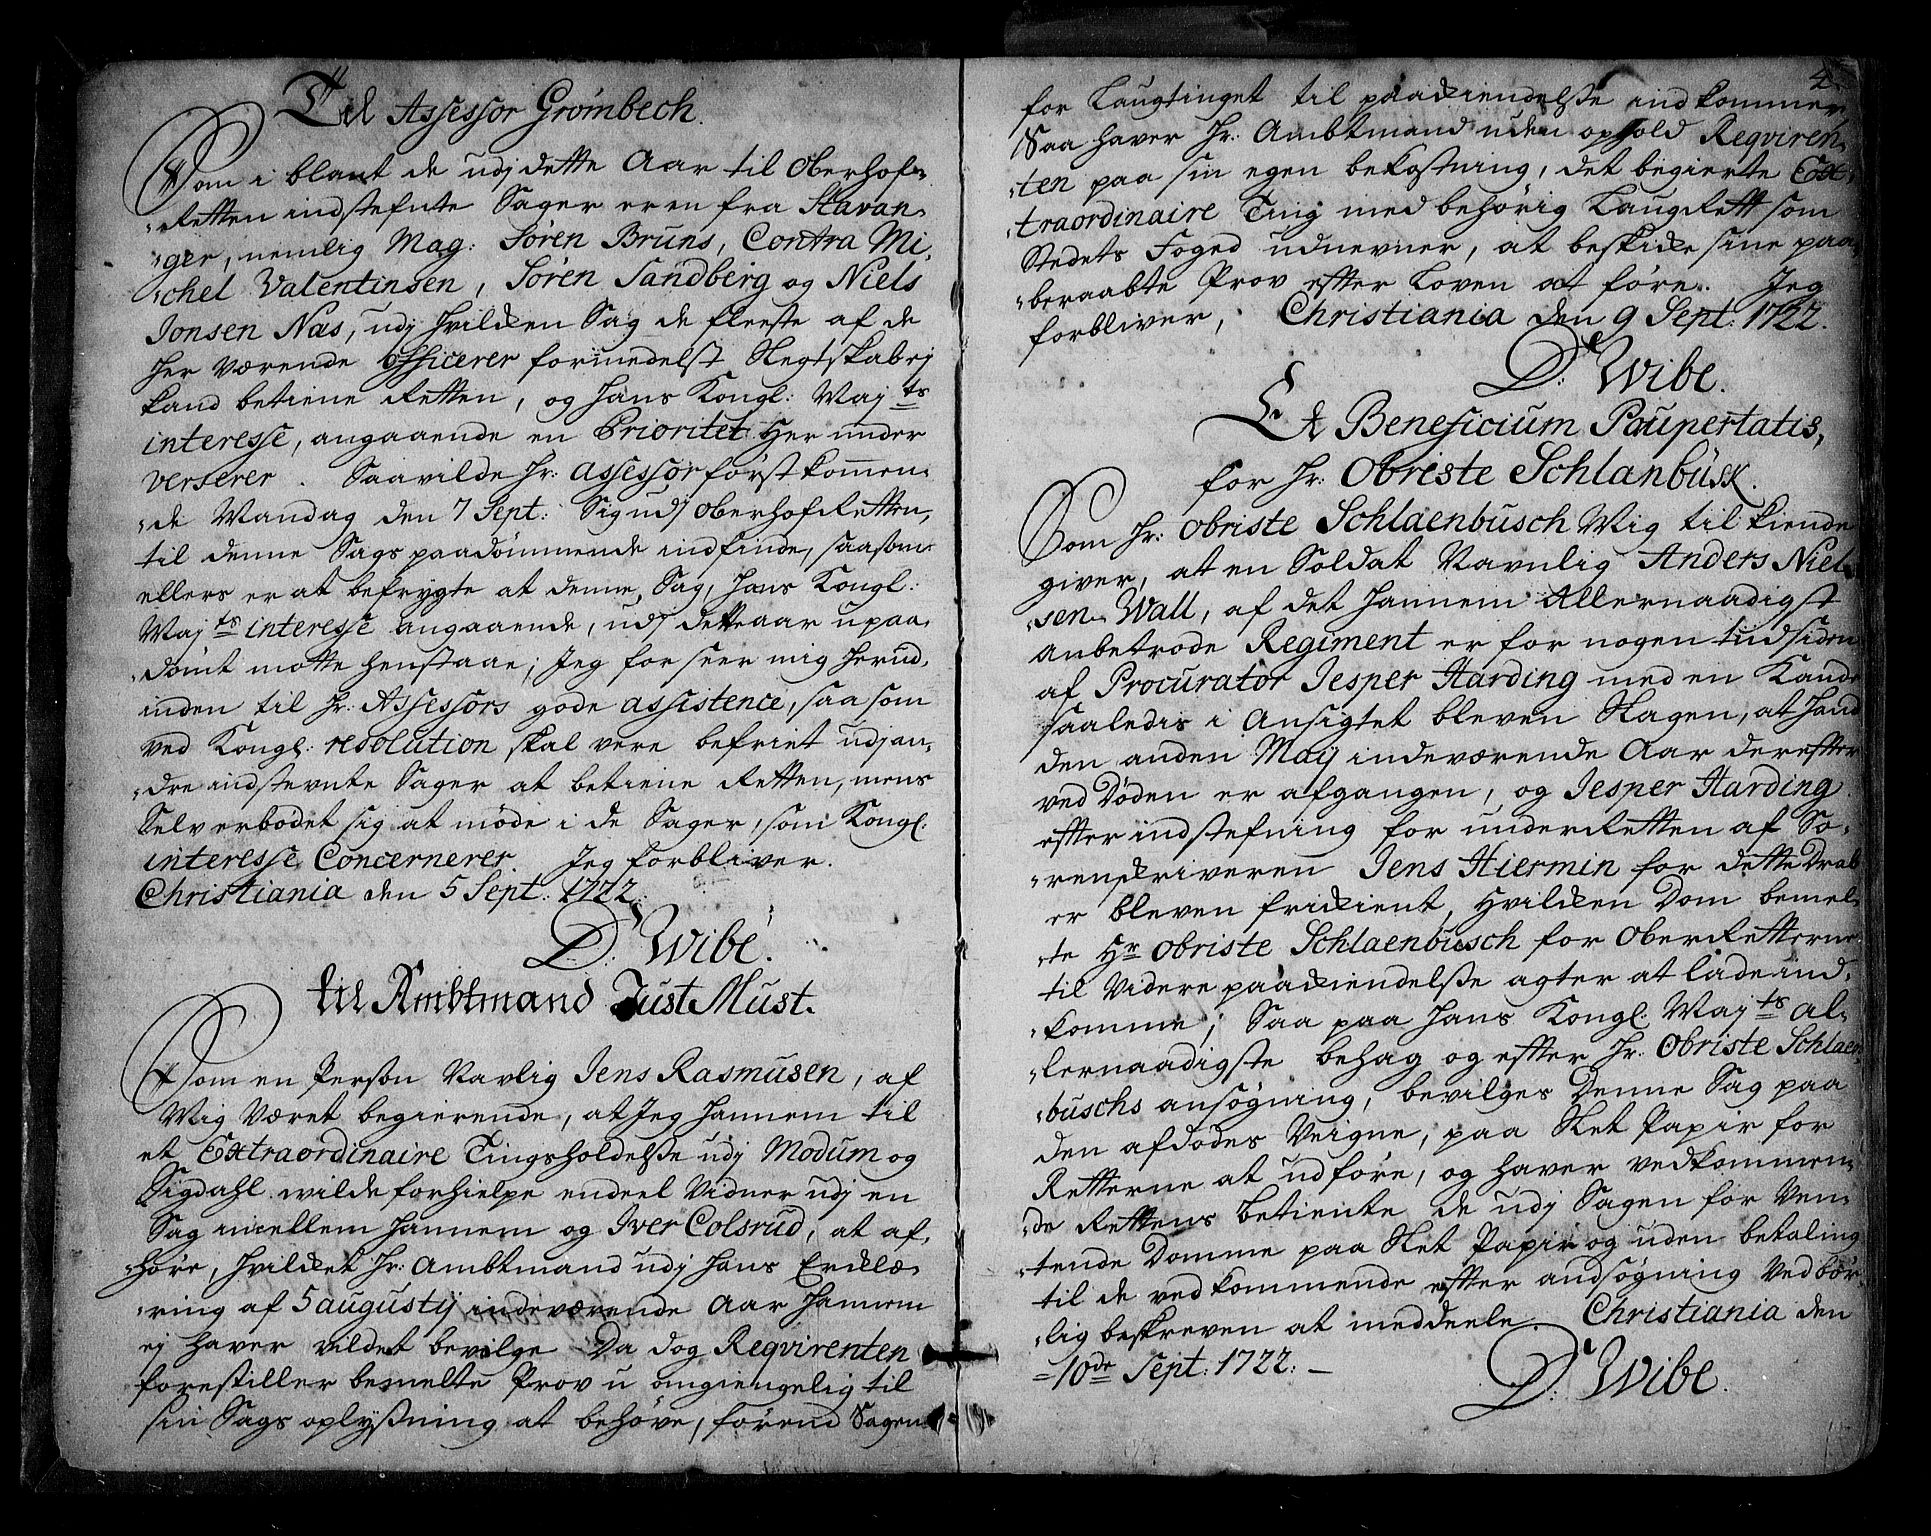 Til Assessor Grömbech.
Som i blant de udj dette Aar til Oberhof-
Retten indstefnte Sager er en fra Stavan-
ger, nemlig Mag: Sören Bruns, Contra Mi-
chel Valentinsen, Sören Sandberg og Niels
Jonsen Nas, udj hvilcken Sag de fleeste af de
her værende officerer formedelst Slegtskab ej
kand betiene Retten, og Hans Kongl: Maj:ts
interesse, angaaende en Prioritet her under
verserer. Saa vilde Hr: assessor först kommen-
de Mandag den 7 Sept: Sig udj oberhofRetten,
til denne Sags paadömmende indfinde, saasom
ellers er at befrygte at denne Sag, Hans Kongl:
Maj:ts interesse angaaende, udj dette aar upaa-
dömt motte henstaae; Jeg forseer mig herud-
inden til Hr: Assessors gode assistence, saasom
ved Kongl: resolution skal vere befriet udj an-
dre indstevnte Sager at betiene Retten, mens
Selv erbodet sig at möde i de Sager, som Kongl:
interesse Concernerer. Jeg forbliver.
Christiania den 5 Sept: 1722.
D: Wibe.
til Ambtmand Just Must.
Som en Person Navlig Jens Rasmusen, af
Mig Været begierende, at Jeg hannem til
et Extraordinaire Tingsholdelsse udj Modum og
Sigdahl wilde forhielpe endeel Vidner udj en
Sag imellem hannem og Iver Colsrud, at af-
höre, hvilcket Hr: Ambtmand udj hans Ercklæ-
ring af 5 augustij indeværende Aar hannem
ej haver vildet bevilge Da dog Reqvirenten
forestiller bemelte Prov u omgiengelig til
sin Sags oplyssning at behöve, förend Sagen
4.
for Laugtinget til paakiendelsse indkommer,
Saa haver Hr: Ambtmand uden ophold Reqviren-
ten paa sin egen bekostning, det begierte Ex-
traordinaire Ting med behörig LaugRett som
Stedets Foged udnevner, at beskicke sine paa-
beraabte Prov efter Loven at före. Jeg
forbliver, Christiania den 9 Sept: 1722.
D: Wibe.
Et Beneficium Paupertatis,
for Hr: Obriste Schlanbüsk.
Som Hr: Obriste Schlaenbusch Mig tilkiende
giver, at en Soldat Navnlig Anders Niel-
sen Wall, af det hannem Allernaadigst
anbetrode Regiment er for nogen tid siden
af Procurator Jesper Harding med en Kande
saaledis i Ansigtet bleven Slagen, at hand
den anden Maij indeværende Aar derefter
ved Döden er afgangen, og Jesper Harding
efter indstefning for underRetten af So-
renskriveren Jens Hiermin for dette Drab
er bleven frikient, hvilcken Dom bemel-
te Hr Obriste Schlaenbusch for OberRetterne
til Videre paakiendelsse agter at lade ind-
komme; Saa paa Hans Kongl: Maj:ts al-
lernaadigste behag og efter Hr: Obriste Schlaen-
buschs ansögning, bevilges Denne Sag paa
den afdödes Veigne, paa Slet Papir for
Retterne at udföre, og haver vedkommen-
de Rettens Betiente de udj Sagen for Ven-
tende Domme paa Slet Papir og uden betaling
til de vedkommende efter andsögning Vedbör-
lig beskreven at meddeele. Christiania den
10de Sept: 1722.
D: Wibe.